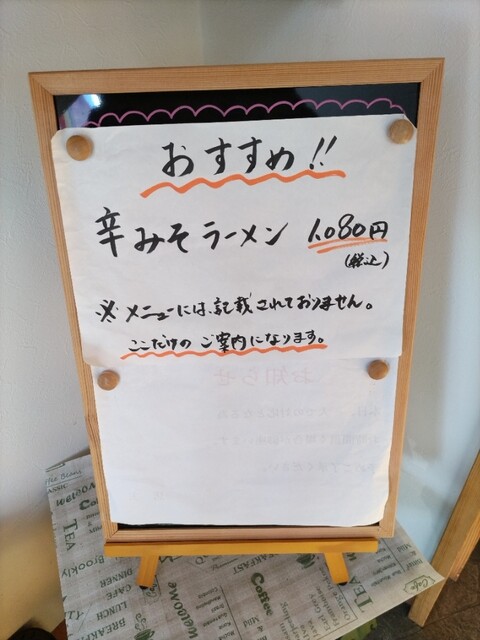 おすすめ!!
辛みそラーメン 1,080円
(税込)
※メニューには、記載されておりません。
ここだけの ご案内になります。
お知らせ
Welcome
TEA
Brooklyn
DINNER
CAFE
LUNCH
BREAKFAST
Coffee
Welcome